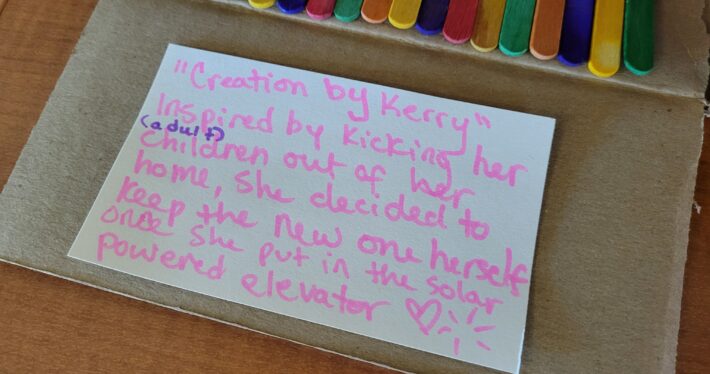 "Creation by Kerry"
Inspired by kicking her
(adult)
children out of her
home, she decided to
keep the new one herself
once she put in the solar
powered elevator